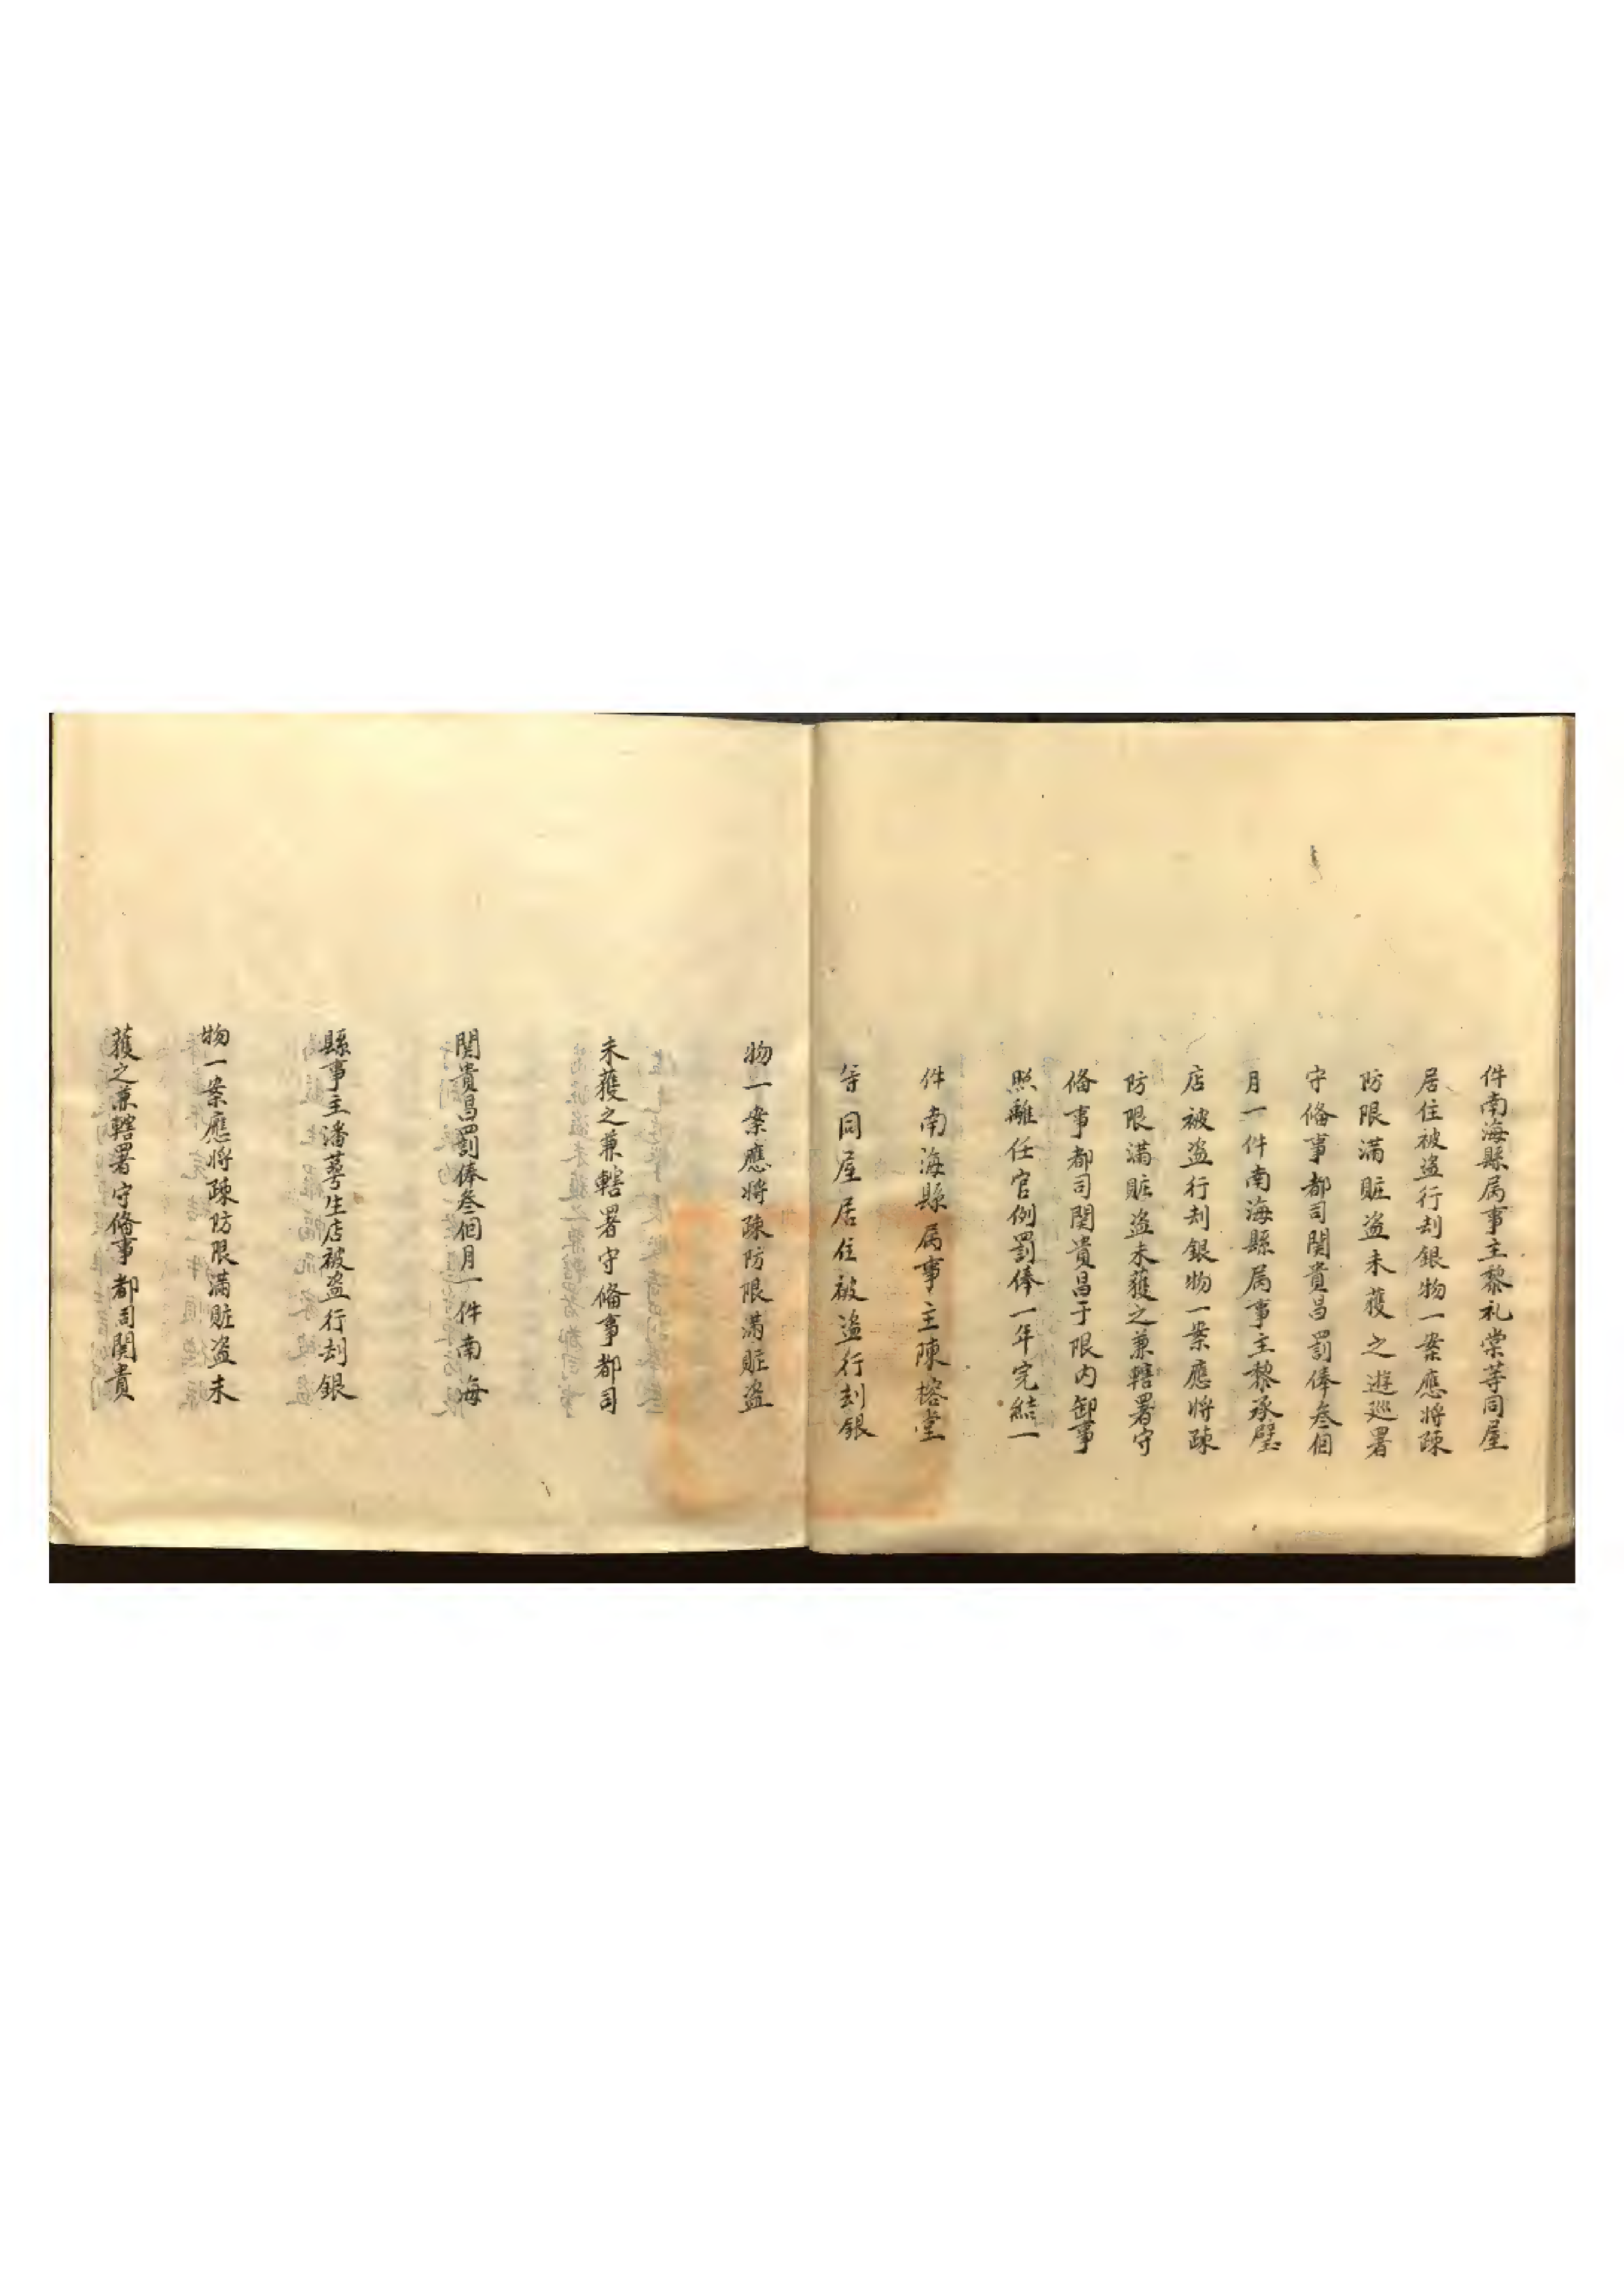 件南海縣属事主黎礼棠等同屋
居住被盜行刦銀物一案應將踈
防限滿賍盜未獲之遊巡署
守俻事都司関貴昌罰俸叁個
月一件南海縣属事主黎承壂
店被盜行刦銀物一案應將踈
防限滿賍盜未獲之兼轄署守
俻事都司関貴昌于限内卸事
照離任官例罰俸一年完結一
件南海縣属事主陳榕堂
等同屋居住被盜行刦銀
物一案應將踈防限滿賍盜
未獲之兼轄署守俻事都司
関貴昌罰俸叁個月一件南海
縣事主潘萼生店被盜行刦銀
物一案應將踈防限滿賍盜未
獲之兼轄署守俻事都司関貴